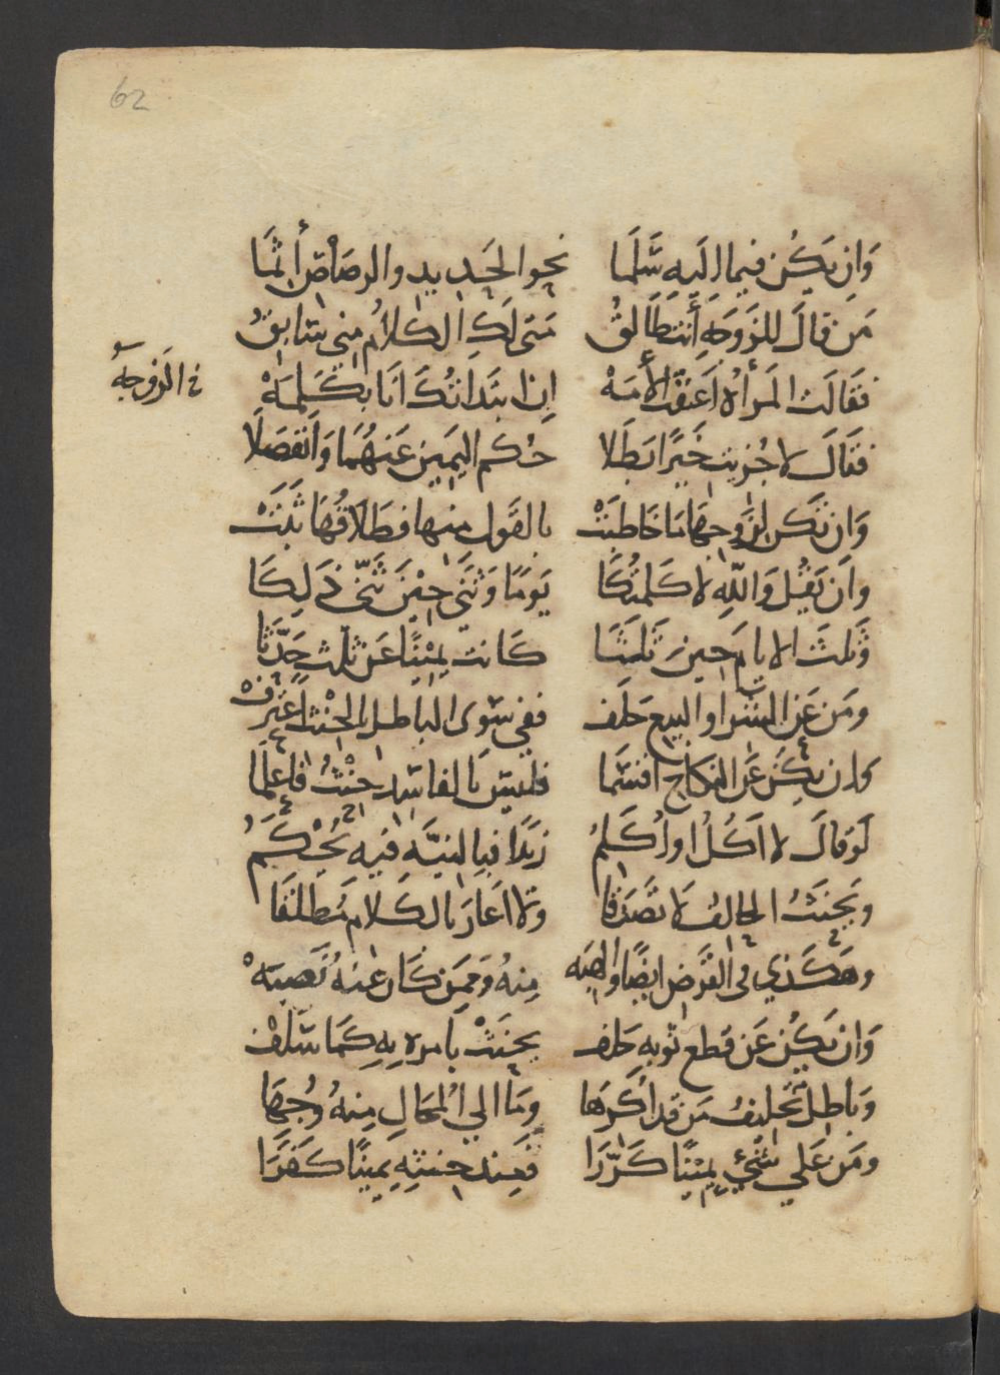 62
وَاِن يَكُن فيما اِلَيهِ سَّلَما نحو الحَديد والرصَاصِ أَثِمَا
مَن قَالَ للزَوجَهِ أَنتِ طَالقُ مَتى لَكِ الكلامُ مِنّي سَابِقُ
في الزوجه
فقَالَت المَرأةُ اَعتقتُ الأَمَهْ اِن ابتَدأتُكَ اَنَا بِكَلِمَهْ
فقَالَ لا جُزيتِ خَيرًا بَطَلا حُكم اليَمين عَنهُمَا وَانفَصَلَا
وَان تَكن لِزَوجِهَا مَا خَاطبَتْ بالقَول منها فطَلَاقُهَا ثَبَتْ
وَاِن يَقُل وَاللّهِ لا كلمتُكَا يَومًا وَثنَي حِيْنَ ثنّى ذَلِكَا
وَثلثَ الايامَ حينَ ثَلثَا كَانت يَمِيْنًا عَن ثلثٍ حَدَّثَا
ومَن عَن الشرا والبيع حَلَف ففي سَوى الباطل بالحِنْث اعتَرفْ
وان يكُن عَن النكاح اقسَما فليسَ بالفاسِد حِنْثُ فاعلَمَا
لَو قالَ لا اَكَلُ او اُكَلِمُ زيَدًا فبِالنيَّهِ فيهِ يُحْكَمُ
ويَحنَثُ الحالفُ لا تَصَدَّقَا ولا اَعَارَ بالكَلام مُطلَقَا
وهَكَذي في القَرض ايضًا والهبَه مِنهُ وَممَن كَان عنهُ نَصبَهْ
وَان يَكُن عَن قطع ثوبهِ حَلف يحنَثْ بأمره بِهِ كمَا سَلَفْ
وَباطِل تَحليفُ مَن قد اُكرَها وَمَا الي المُحَالِ مِنهُ وُجِهَا
ومَن عَلي شْيٍ يَمِيْنًا كَرَّرَا فعِند حِنثِهِ يَمِينًا كَفَّرَا